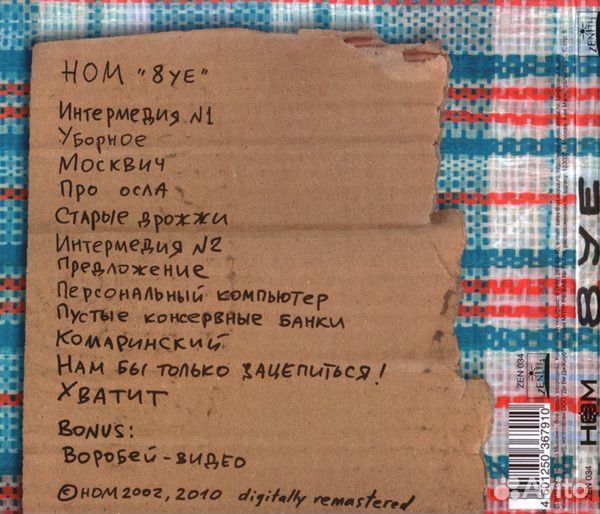 НОМ "8УЕ"
Интермедия №1
Уборное
Москвич
Про осла
Старые дрожжи
Интермедия №2
Предложение
Персональный компьютер
Пустые консервные банки
Комаринский
Нам бы только зацепиться!
Хватит
Bonus:
Воробей-видео
©НОМ 2002, 2010 digitally remastered
ZENITH
8УЕ
ZEN 034
ZENITH
НОМ
ZEN 034
4 601250 367910
Avito